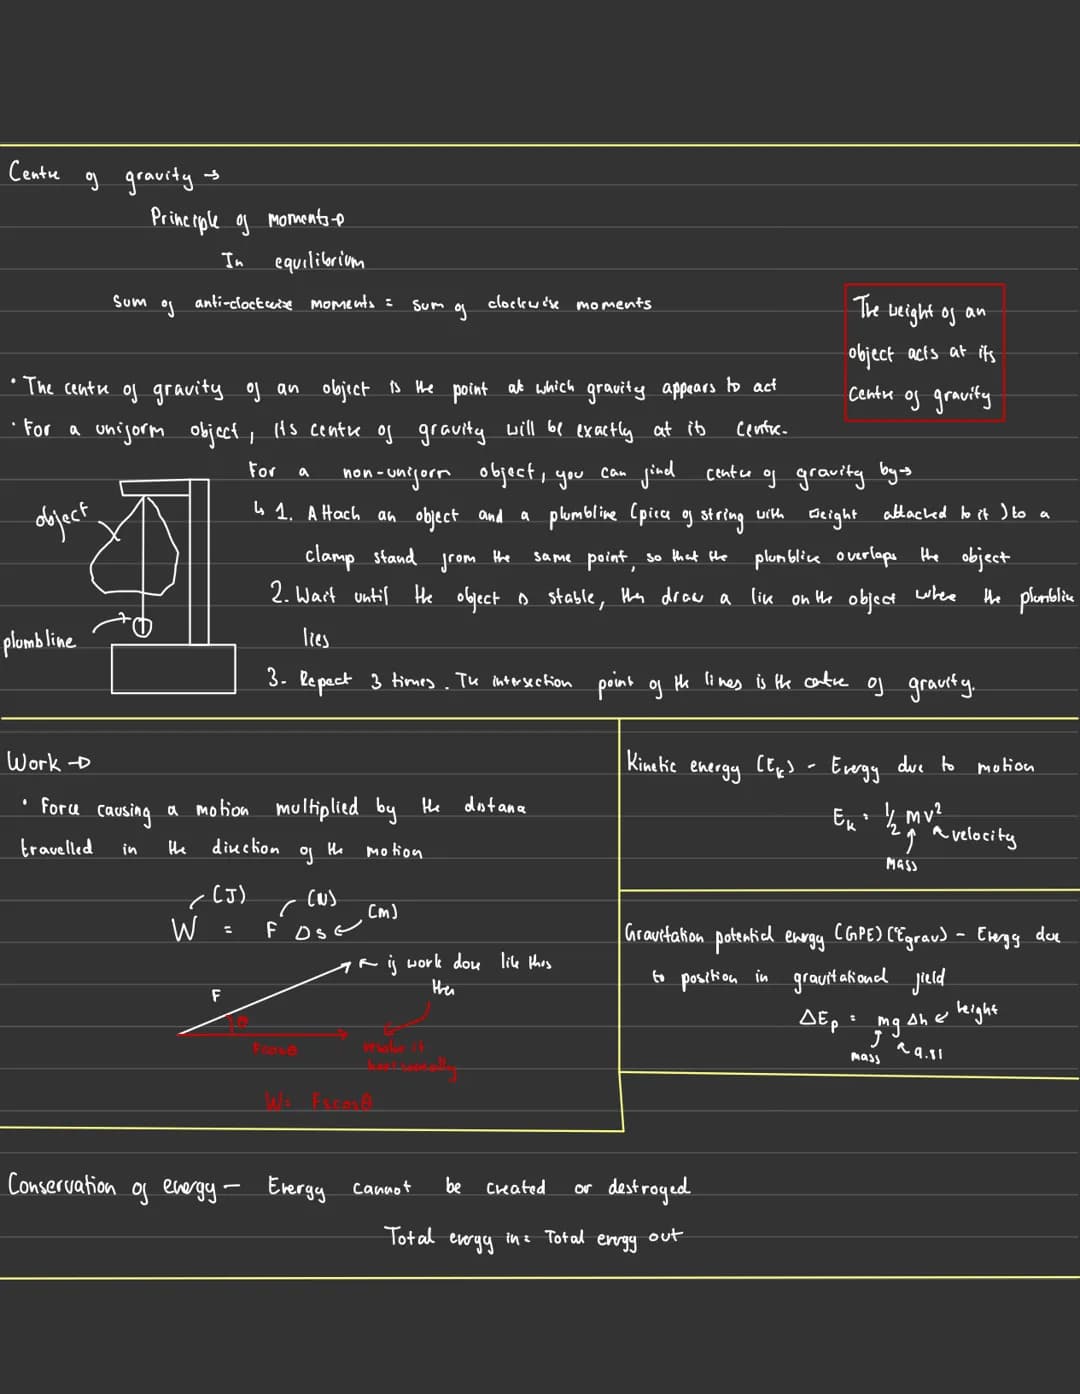 Centre of gravity →
Principle of moments →
In equilibrium
Sum of anti-clockwise moments = sum of clockwise moments
The weight of an
object acts at its
Centre of gravity
• The centre of gravity of an object is the point at which gravity appears to act
• For a uniform object, its centre of gravity will be exactly at its centre.
For a non-uniform object, you can find centre of gravity by →
↳ 1. Attach an object and a plumbline (piece of string with weight attached to it) to a
clamp stand from the same point, so that the plumbline overlaps the object
2. Wait until the object is stable, then draw a line on the object where the plumbline
lies
3. Repeat 3 times. The intersection point of the lines is the centre of gravity.
object
plumbline
Work →
• Force causing a motion multiplied by the distance
travelled in the direction of the motion
(J) (N) (m)
W = F Δs
if work done like this
then
F
θ
Fcosθ
resolve it
horizontally
W = Fscosθ
Kinetic energy (Ek) - Energy due to motion
Ek = ½ mv²
velocity
mass
Gravitation potential energy (GPE) (Egrav) - Energy due
to position in gravitational field
ΔEp = mg Δh height
mass 9.81
Conservation of energy - Energy cannot be created or destroyed
Total energy in = Total energy out